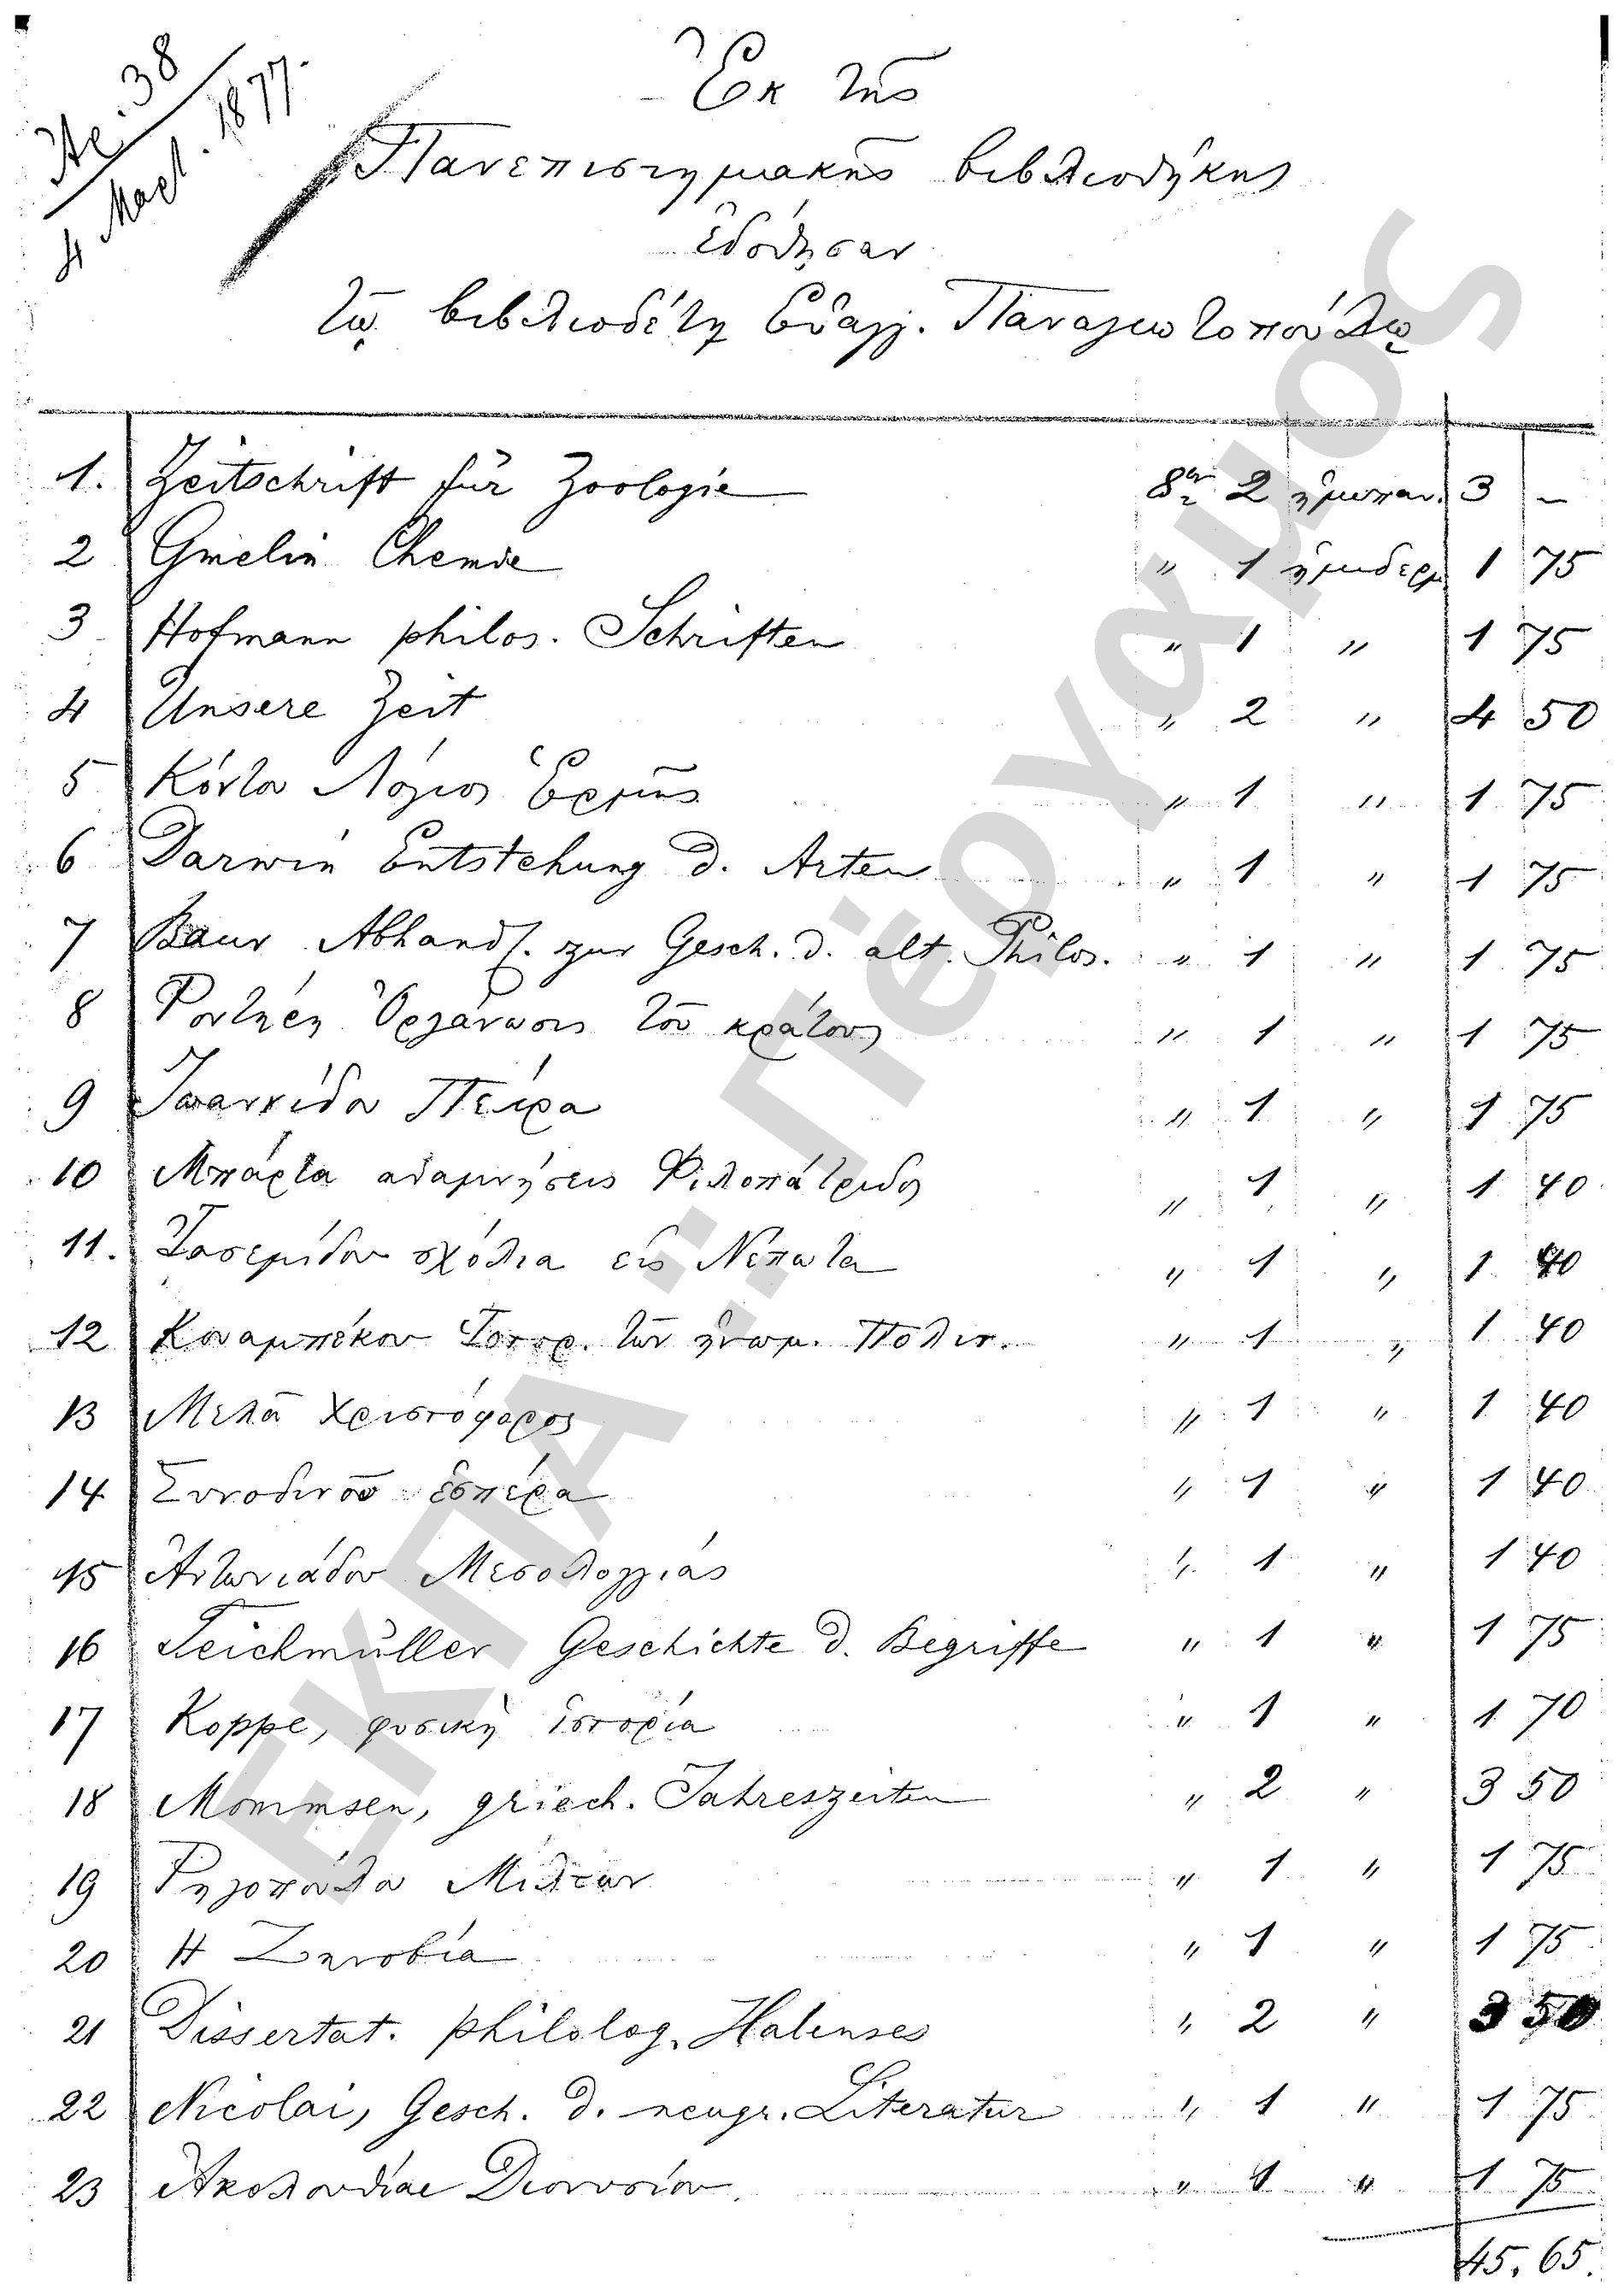 38
4 Μαρτ. 1877.
Ἐκ τῆς
Πανεπιστημιακῆς βιβλιοθήκης
ἐδόθησαν
τῷ βιβλιοδέτῃ Εὐαγγ. Παναγιωτοπούλῳ
1. Zeitschrift für Zoologie 8ον 2 ἡμιπαν. 3 –
2 Gmelin Chemie " 1 ἡμιδερμ. 1 75
3 Hofmann philos. Schriften " 1 " 1 75
4 Unsere Zeit " 2 " 4 50
5 Κόντου Λόγιος Ἑρμῆς " 1 " 1 75
6 Darwin Entstehung d. Arten " 1 " 1 75
7 Baur Abhandl. zur Gesch. d. alt. Philos. " 1 " 1 75
8 Ὀργάνωσις τοῦ κράτους " 1 " 1 75
9 Ἰωαννίδου Πεῖρα " 1 " 1 75
10 Μπάρτα ἀναμνήσεις Φιλοπάτριδος " 1 " 1 40
11. σχόλια εἰς Νέπωτα " 1 " 1 40
12 τῶν Πολιτ. " 1 " 1 40
13 Μελᾶ Χριστόφορος " 1 " 1 40
14 Συνοδινοῦ ἑσπέρα " 1 " 1 40
15 Ἀντωνιάδου Μεσολογγιάς " 1 " 1 40
16 Teichmüller Geschichte d. Begriffe " 1 " 1 75
17 Koppe, φυσική ἱστορία " 1 " 1 70
18 Mommsen, griech. Jahreszeiten " 2 " 3 50
19 Ῥηγοπούλου " 1 " 1 75
20 Η Ζηνοβία " 1 " 1 75
21 Dissertat. philolog. Halenses " 2 " 3 50
22 Nicolai, Gesch. d. neugr. Literatur " 1 " 1 75
23 Ἀκολουθίαι Διονυσίου. " 1 " 1 75
45.65.
ΕΚΠΑ:: Πέργαμος